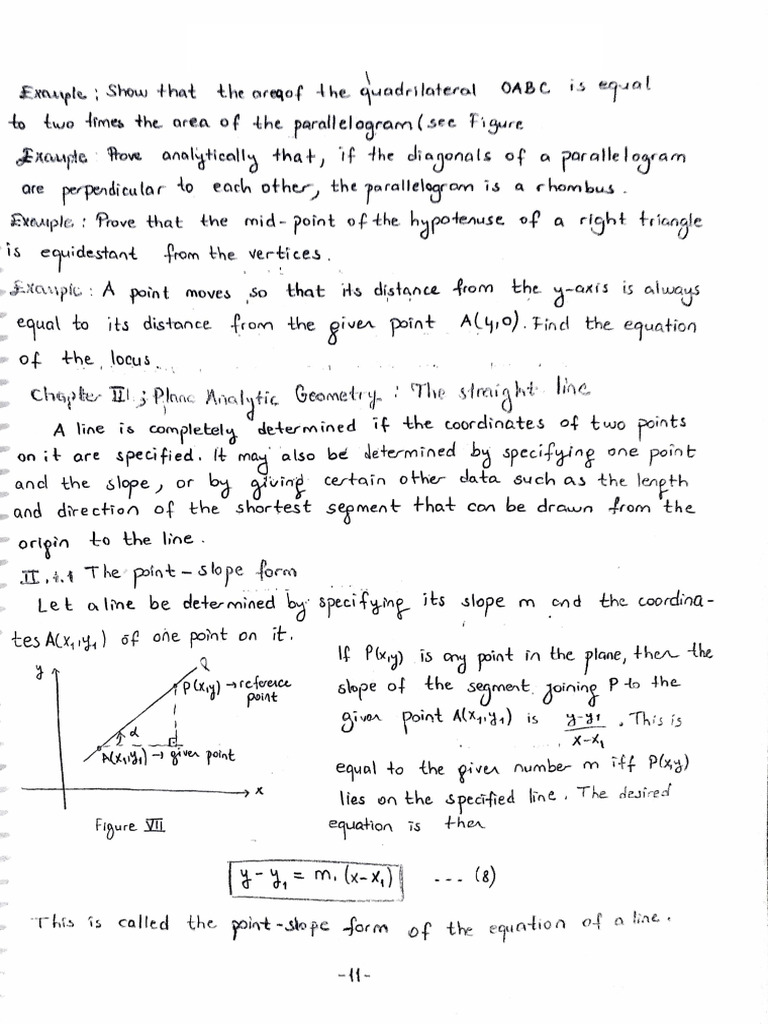 Example ; Show that the area of the quadrilateral OABC is equal
to two times the area of the parallelogram (see Figure
Example : Prove analytically that, if the diagonals of a parallelogram
are perpendicular to each other, the parallelogram is a rhombus.
Example : Prove that the mid-point of the hypotenuse of a right triangle
is equidestant from the vertices.
Example : A point moves so that its distance from the y-axis is always
equal to its distance from the given point A(4,0). Find the equation
of the locus.
Chapter III ; Plane Analytic Geometry : The straight line
A line is completely determined if the coordinates of two points
on it are specified. It may also be determined by specifying one point
and the slope, or by giving certain other data such as the length
and direction of the shortest segment that can be drawn from the
origin to the line.
II.1.1 The point-slope form
Let a line be determined by specifying its slope m and the coordina-
tes A(x₁,y₁) of one point on it.
y
Q
P(x,y) → reference
point
α
A(x₁,y₁) → given point
x
Figure VII
If P(x,y) is any point in the plane, then the
slope of the segment joining P to the
given point A(x₁,y₁) is y-y₁/x-x₁. This is
equal to the given number m iff P(x,y)
lies on the specified line. The desired
equation is then
y-y₁ = m.(x-x₁) ... (8)
This is called the point-slope form of the equation of a line.
-11-